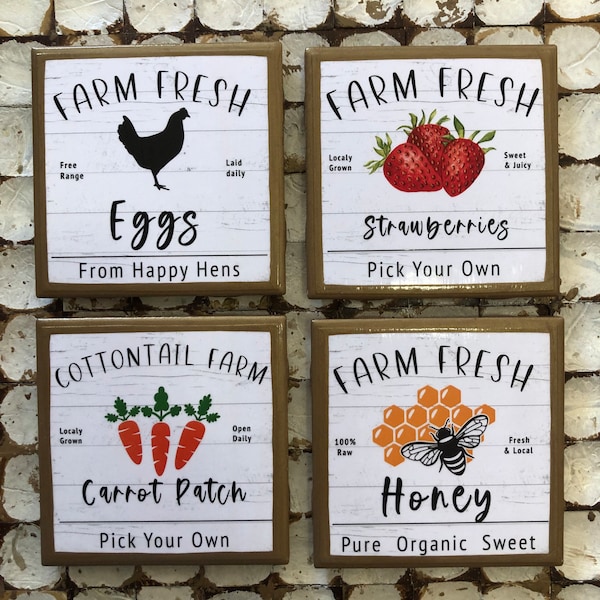 FARM FRESH
Free Range
Laid daily
Eggs
From Happy Hens
FARM FRESH
Localy Grown
Sweet & Juicy
Strawberries
Pick Your Own
COTTONTAIL FARM
Localy Grown
Open Daily
Carrot Patch
Pick Your Own
FARM FRESH
100% Raw
Fresh & Local
Honey
Pure Organic Sweet